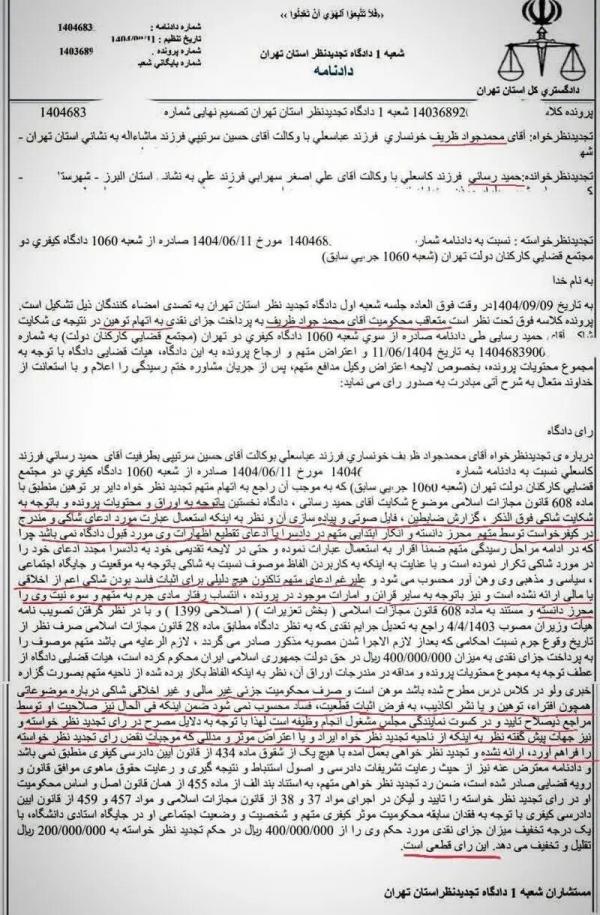 «فَلَا تَتَّبِعُوا الْهَوَىٰ أَنْ تَعْدِلُوا»
شماره دادنامه : 1404683
تاریخ تنظیم :
شماره پرونده : 1403689
شماره بایگانی شعب
شعبه 1 دادگاه تجدیدنظر استان تهران
دادنامه
دادگستري کل استان تهران
پرونده کلاسه 14036892 شعبه 1 دادگاه تجدیدنظر استان تهران تصمیم نهایی شماره 1404683
تجدیدنظرخواه: آقای محمدجواد ظریف خونساری فرزند عباسعلی با وکالت آقای حسین سرتیپی فرزند ماشاءاله به نشانی استان تهران -
تجدیدنظرخوانده:حمید رسایي فرزند کاسعلي با وکالت آقای علي اصغر سهرابي فرزند علي به نشانی استان البرز -
تجدیدنظرخواسته : نسبت به دادنامه شماره 140468 مورخ 1404/06/11 صادره از شعبه 1060 دادگاه کیفري دو
مجتمع قضایي کارکنان دولت تهران (شعبه 1060 جزیي سابق)
به نام خدا
به تاریخ 1404/09/09در وقت فوق العاده جلسه شعبه اول دادگاه تجدید نظر استان تهران به تصدی امضاء کنندگان ذیل تشکیل است.
پرونده کلاسه فوق تحت نظر است متعاقب محکومیت آقای محمد جواد ظریف به پرداخت جزای نقدی به اتهام توهین در نتیجه ی شکایت
آقای حمید رسایی طی دادنامه صادره از سوی شعبه 1060 دادگاه کیفری دو تهران (مجتمع قضایی کارکنان دولت) به شماره
1404683900 به تاریخ 11/06/1404 و اعتراض متهم و ارجاع پرونده به این دادگاه، هیات قضایی دادگاه با توجه به
مجموع محتویات پرونده، بخصوص لایحه اعتراض وکیل مدافع متهم، پس از جریان مشاوره ختم رسیدگی را اعلام و با استعانت از
خداوند متعال به شرح آتی مبادرت به صدور رای می نماید:
رای دادگاه
درباره ی تجدیدنظرخواه آقای محمدجواد ظریف خونساری فرزند عباسعلي بوکالت آقای حسین سرتیپي بطرفیت آقای حمید رسائي فرزند
کاسعلي نسبت به دادنامه شماره 14046 مورخ 1404/06/11 صادره از شعبه 1060 دادگاه کیفري دو مجتمع
قضایي کارکنان دولت تهران (شعبه 1060 جزیي سابق) که به موجب آن راجع به اتهام متهم تجدید نظر خواه دایر بر توهین منطبق با
ماده 608 قانون مجازات اسلامی موضوع شکایت آقای حمید رسائی ، دادگاه نخستین باتوجه به اوراق و محتویات پرونده و باتوجه به
شکایت شاکی فوق الذکر ، گزارش ضابطین ، فایل صوتی و پیاده سازی آن و نظر به اینکه استعمال عبارت مورد ادعای شاکی و مندرج
در کیفرخواست توسط متهم محرز دانسته و انکار ابتدایی متهم در دادسرا یا ادعای تقطیع اظهارات وی مورد قبول دادگاه نمی باشد چرا
که در ادامه مراحل رسیدگی متهم ضمنا اقرار به استعمال عبارات نموده و حتی در لایحه تقدیمی خود به دادسرا مجدد ادعای خود را
در مورد شاکی تکرار نموده است و با عنایت به اینکه به کاربردن الفاظ موصوف نسبت به شاکی باتوجه به موقعیت و جایگاه اجتماعی
، سیاسی و مذهبی وی وهن آور محسوب می شود و علیرغم ادعای متهم تاکنون هیچ دلیلی برای اثبات فاسد بودن شاکی اعم از اخلاقی
یا مالی ارائه نشده است و نیز باتوجه به سایر قرائن و امارات موجود در پرونده ، انتساب رفتار مادی جرم به متهم و سوء نیت وی را
محرز دانسته و مستند به ماده 608 قانون مجازات اسلامی ( بخش تعزیرات ) ( اصلاحی 1399 ) و با در نظر گرفتن تصویب نامه
هیأت وزیران مصوب 4/4/1403 راجع به تعدیل جرایم نقدی که به نظر دادگاه مطابق ماده 28 قانون مجازات اسلامی صرف نظر از
تاریخ وقوع جرم نسبت احکامی که بعداز لازم الاجرا شدن مصوبه مذکور صادر می گردد ، لازم الرعایه می باشد متهم موصوف را
به پرداخت جزای نقدی به میزان 400/000/000 ریال در حق دولت جمهوری اسلامی ایران محکوم کرده است، هیات قضایی دادگاه از
عطف توجه به مجموع محتویات پرونده و مداقه در مندرجات اوراق آن، نظر به اینکه الفاظ بکار برده شده از ناحیه متهم بصورت گزاره
خبری ولو در کلاس درس مطرح شده باشد موهن است و صرف محکومیت جزئی غیر مالی و غیر اخلاقی شاکی درباره موضوعاتی
همچون افتراء، توهین و یا نشر اکاذیب، به فرض اثبات قطعیت، فساد محسوب نمی شود ضمن اینکه فی الحال نیز صلاحیت او توسط
مراجع ذیصلاح تایید و در کسوت نمایندگی مجلس مشغول انجام وظیفه است لهذا با توجه به دلایل مصرح در رای تجدید نظر خواسته و
نیز جهات پیش گفته نظر به اینکه از ناحیه تجدید نظر خواه ایراد و یا اعتراض موثر و مدللی که موجبات نقض رای تجدید نظر خواسته
را فراهم آورد، ارائه نشده و تجدید نظر خواهی بعمل آمده با هیچ یک از شقوق ماده 434 از قانون ایین دادرسی کیفری منطبق نمی باشد
و دادنامه معترض عنه نیز از حیث رعایت تشریفات دادرسی و اصول استنباط و نتیجه گیری و رعایت حقوق ماهوی موافق قانون و
رویه قضایی صادر شده است، ضمن رد تجدید نظر خواهی متهم، به استناد بند الف از ماده 455 از همان قانون اصل و اساس محکومیت
او در رای تجدید نظر خواسته را تایید و لیکن در اجرای مواد 37 و 38 از قانون مجازات اسلامی و مواد 457 و 459 از قانون ایین
دادرسی کیفری با توجه به فقدان سابقه محکومیت موثر کیفری متهم و شخصیت و وضعیت اجتماعی او در جایگاه استادی دانشگاه، با
یک درجه تخفیف میزان جزای نقدی مورد حکم وی را از 400/000/000 ریال در حکم تجدید نظر خواسته به 200/000/000 ریال
تقلیل و تخفیف می دهد. این رای قطعی است.
مستشاران شعبه 1 دادگاه تجدیدنظراستان تهران